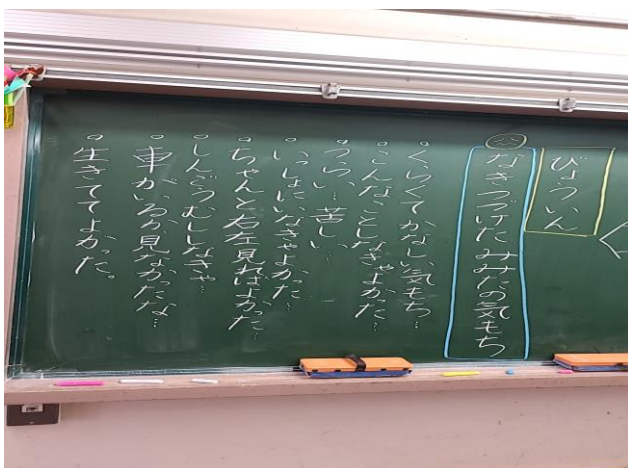 びょういん
なきつづけたみみたの気もち
くらくてかなしい気もち…
こんなことしなきゃよかった…
つらい…苦しい…
いっしょにいなきゃよかった…
ちゃんと右左見ればよかった…
しんごうむししなきゃ…
車がいるか見なかったな…
生きててよかった。